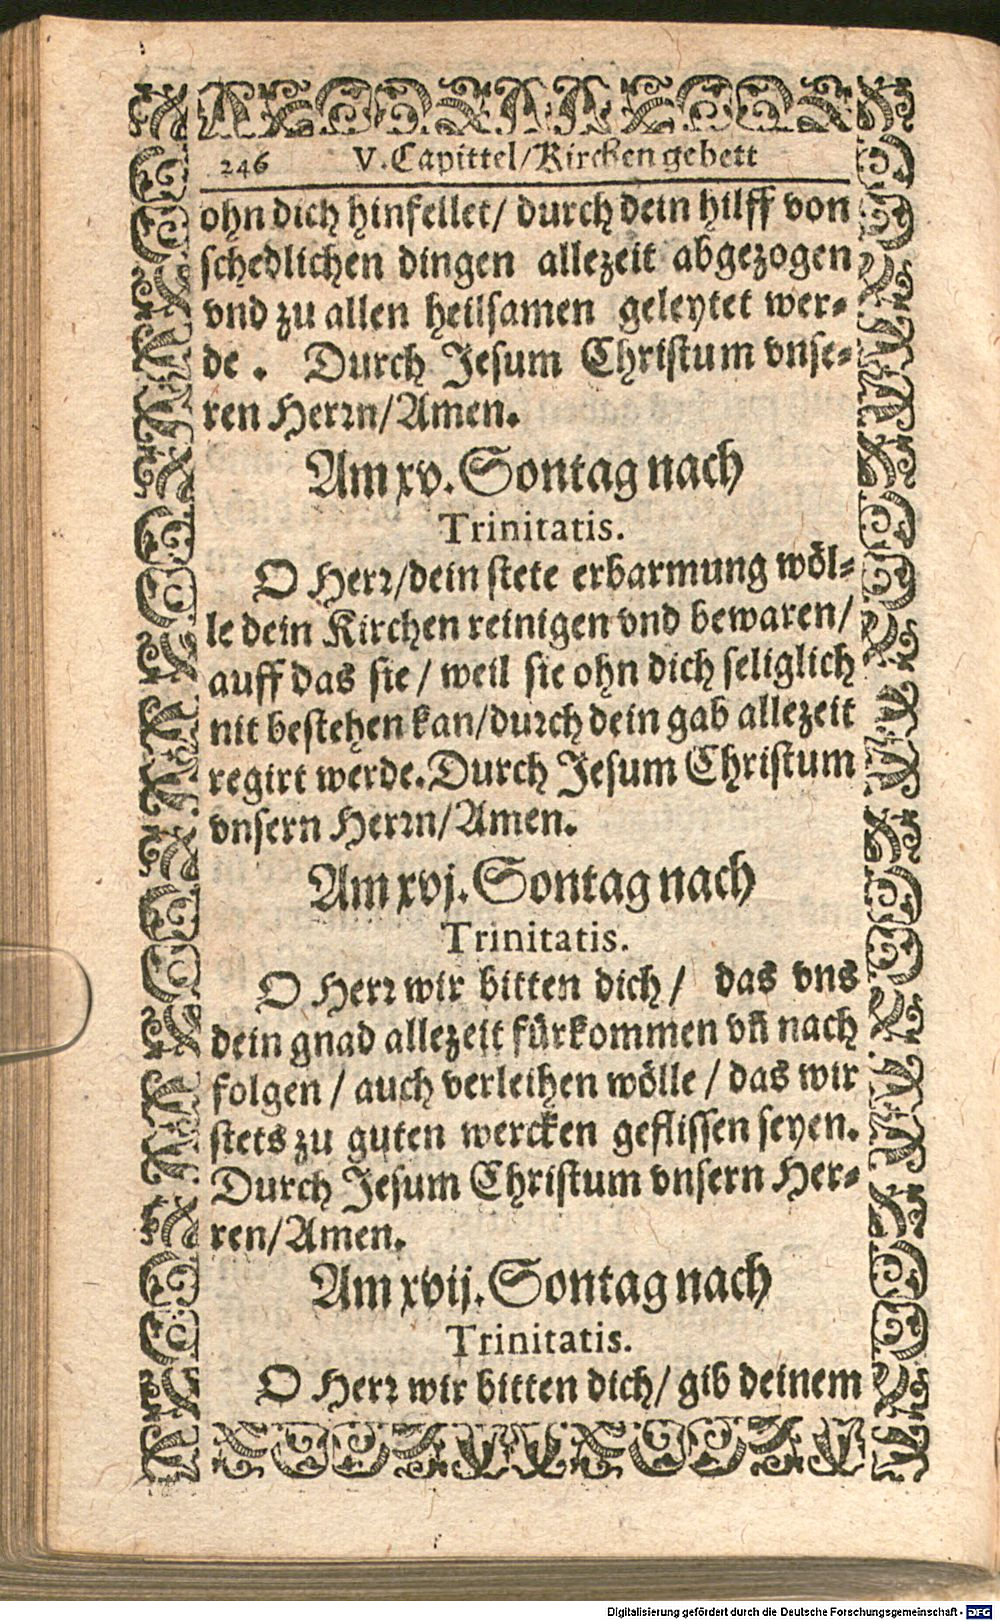 246 V. Capittel/Kirchen gebett
ohn dich hinfellet/ durch dein hilff von
schedlichen dingen allezeit abgezogen
vnd zu allen heilsamen geleytet wer-
de. Durch Jesum Christum vnse-
ren Herrn/Amen.
Am xv. Sontag nach
Trinitatis.
O Herr/dein stete erbarmung wöl-
le dein Kirchen reinigen vnd bewaren/
auff das sie/ weil sie ohn dich seliglich
nit bestehen kan/durch dein gab allezeit
regirt werde. Durch Jesum Christum
vnsern Herrn/Amen.
Am xvj. Sontag nach
Trinitatis.
O Herr wir bitten dich/ das vns
dein gnad allezeit fürkommen vñ nach
folgen/ auch verleihen wölle/ das wir
stets zu guten wercken geflissen seyen.
Durch Jesum Christum vnsern Her-
ren/Amen.
Am xvij. Sontag nach
Trinitatis.
O Herr wir bitten dich/ gib deinem
Digitalisierung gefördert durch die Deutsche Forschungsgemeinschaft - DFG